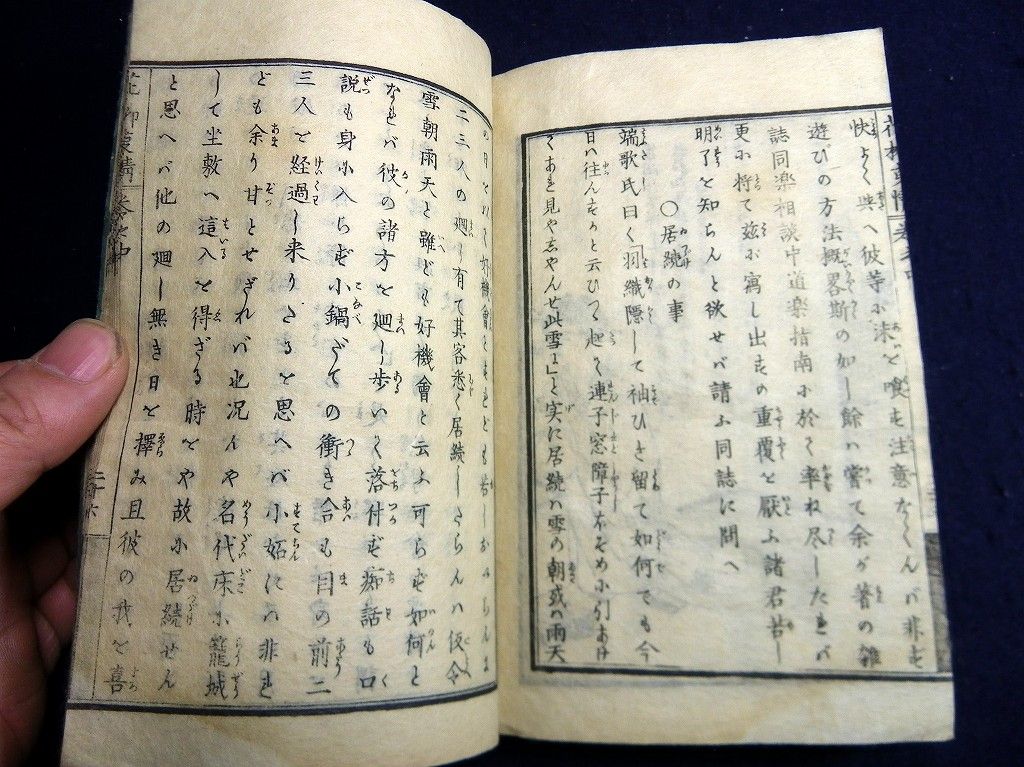 快よく與へ彼等に決と喰も注意なくんバ非ず
遊びの方法概畧斯の如し餘ハ嘗て余が著の雑
誌同楽相談中道楽指南に於て率ね尽したれバ
更に将て茲に寫し出すの重覆を厭ふ諸君苦し
明了を知らんと欲せバ請ふ同誌に問へ
〇居続の事
端歌氏曰く羽織隠して袖ひき留て如何でも今
日ハ往んすかと云ひつゝ起て連子窓障子ほそめに引あけ
くあれ見やしやんせ此雪に」と実に居続ハ雪の朝或ハ雨天
二三人の廻し有て其客悉く居続しさらんハ仮令
雪朝雨天と雖ども好機會と云ふ可らず如何と
なれバ彼の諸方を廻り歩いて落付ず痴話も口
説も身に入らず小鍋だての衝き合も目の前二
三人を経過し来りさると思へバ小妬にハ非れ
ども余り甘とせざれバ也况んや名代床に籠城
して坐敷へ這入を得ざる時をや故に居続せん
と思へバ他の廻し無き日を擇み且彼の我を喜